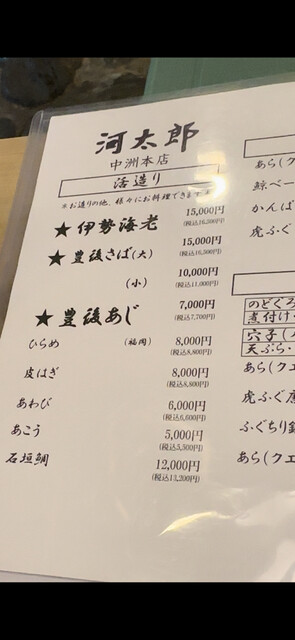 河太郎
中洲本店
活造り
※お造りの他、様々にお料理できます
★伊勢海老 15,000円
(税込16,500円)
★豊後さば(大) 15,000円
(税込16,500円)
(小) 10,000円
(税込11,000円)
★豊後あじ 7,000円
(税込7,700円)
ひらめ (福岡) 8,000円
(税込8,800円)
皮はぎ 8,000円
(税込8,800円)
あわび 6,000円
(税込6,600円)
あこう 5,000円
(税込5,500円)
石垣鯛 12,000円
(税込13,200円)
あら(ク
鯨ベー
かんぱ
虎ふぐ
のどぐろ
煮付け・
穴子(
天ぷら・
あら(クエ
虎ふぐ
ふぐちり
あら(クエ